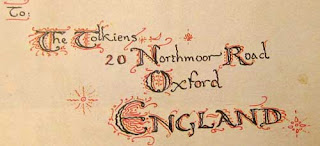 To
The Tolkiens
20 Northmoor Road
Oxford
ENGLAND